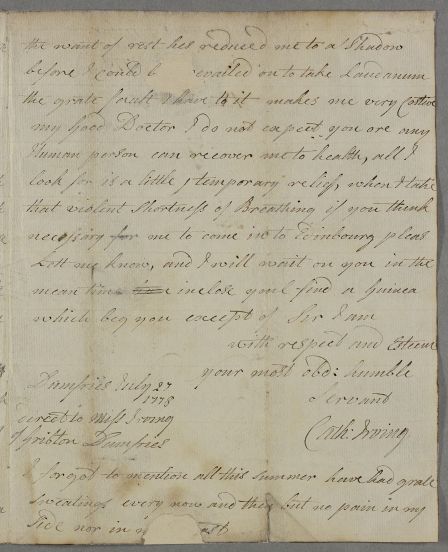 the want of rest has reduced me to a Shadow
before I could b vailed on to take Laudanum
the grate fault I have to it makes me very Costive
my Good Doctor I do not expect you or any
Human person can recover me to health, all I
look for is a little temporary relief, when I take
that violent Shortness of Breathing if you think
necessary for me to come in to Edinbourg pleas
Lett me know, and I will wait on you in the
mean time inclose youl find a Guinea
which beg you except of Sir I am
with respect and Esteem
your most obd: humble
Servant
Cath: Irving
Dumfries July 27
1778
Direct to Miss Irving
of Gribton Dumfries
I forgot to mention all this Summer have had grate
Sweatings every now and then but no pain in my
Side nor in